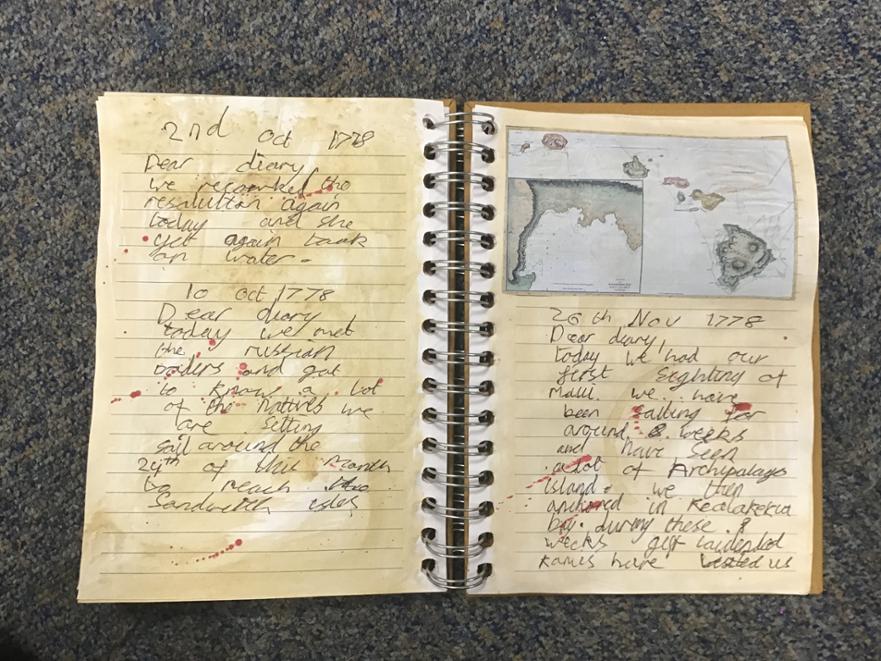 2nd Oct 1778
Dear diary
we recorked the
resolution again
today and she
yet again took
on water.
10 oct 1778
Dear diary
today we met
the russian
and got
to know a lot
of the natives we
are setting
sail around the
24th of this month
to reach the
Sandwith isles
26th Nov 1778
Dear diary,
today we had our
first sighting of
maui. we have
been sailing for
around 8 weeks
and have seen
a lot of Archipalago
island. we then
anchored in Kealakekua
bay. during these 8
weeks
have visted us